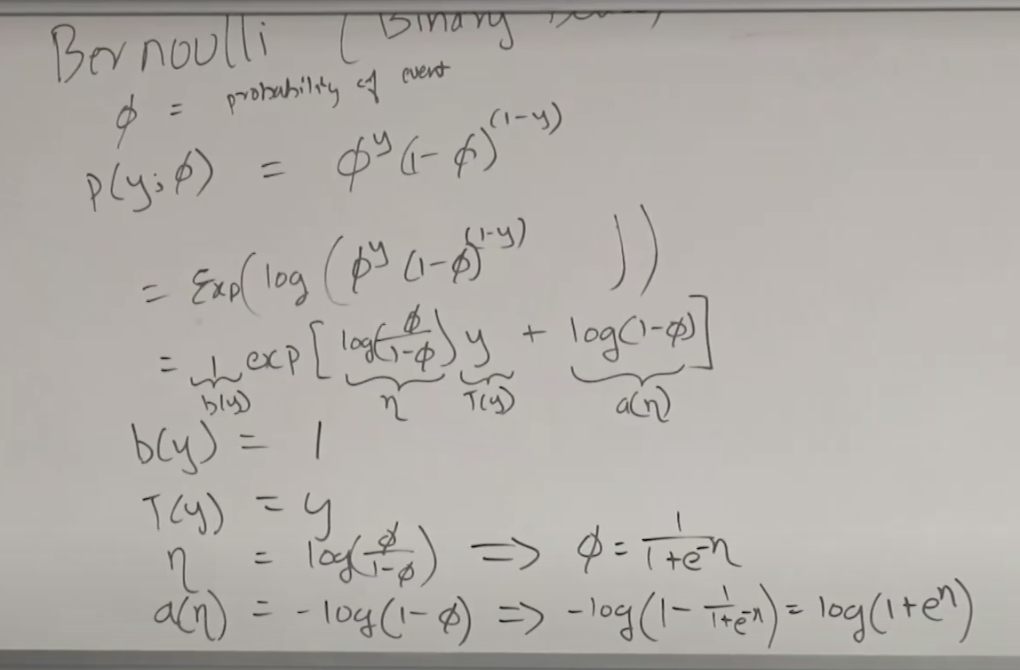 Bernoulli (Binary
φ = probability of event
P(y; φ) = φ^y (1-φ)^(1-y)
= Exp(log(φ^y (1-φ)^(1-y)))
= 1 exp[log(φ/(1-φ)) y + log(1-φ)]
b(y) η T(y) a(η)
b(y) = 1
T(y) = y
η = log(φ/(1-φ)) => φ = 1/(1+e^-η)
a(η) = -log(1-φ) => -log(1 - 1/(1+e^-η)) = log(1+e^η)